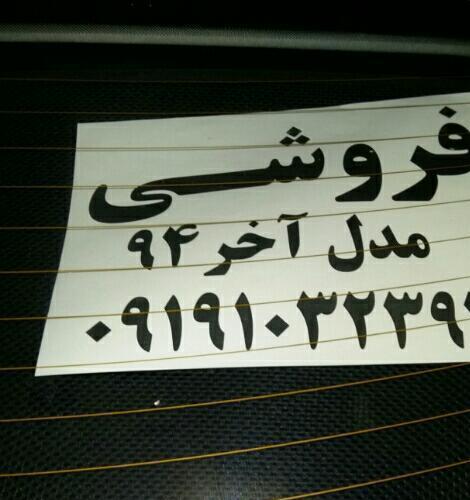 فروشی
مدل آخر ۹۴
۰۹۱۹۱۰۳۲۳۹